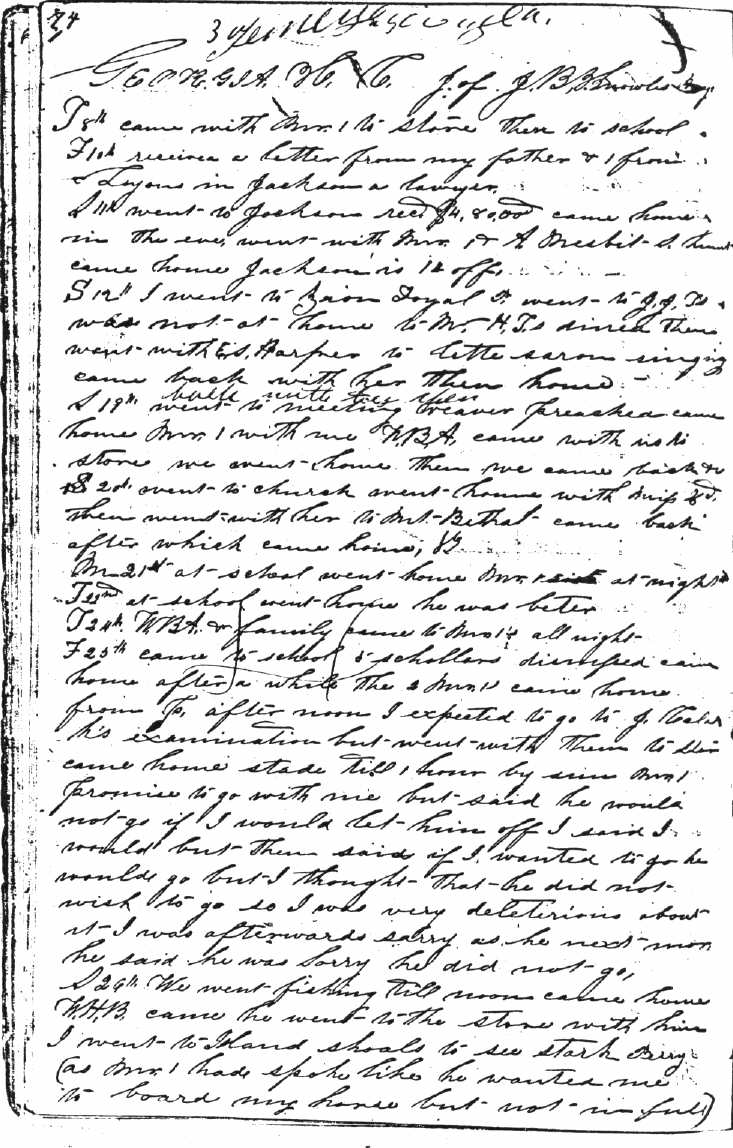 74
GEORGIA. H. C. J. of J. B. Z. Knowles
T 8th came with Mr. 1 to store then to school.
F 10th received a letter from my father & 1 from
Lyons in Jackson a lawyer.
S 11th went to Jackson recd came home
in the eve, went with Mr. 1 & A Nesbit S.
came home Jackson is 12 off.
S 12th I went to Zaion Loyal & went to J. J. Ts
was not at home to W. H. Ts dined then
went with E. S. Harper to lette saron singing
came back with her then home.
back with her then
S 19th went to meeting Weaver preached came
home Mr. 1 with me W.B.A. came with us to
store we went home then we came back &
S 20th went to church went home with
then went with her to Mt. Bethal came back
after which came home,
M 21st at school went home Mr. 1 at night
T 22nd at school went home he was beter
T 24th W.B.A. & family came to Mr. 1's all night
F 25th came to school 5 schollars dismissed came
home after a while the 2 Mr. 1s came home
from after noon I expected to go to J.
examination but went with them to
came home stade till 1 hour by sun Mr. 1
promise to go with me but said he would
not go if I would let him off I said I
would but then said if I wanted to go he
would go but I thought that he did not
wish to go so I was very deleterious about
it I was afterwards sorry as he next mor
he said he was sorry he did not go,
S 26th We went fishing till noon came home
W.H.B. came he went to the store with him
I went to Iland shoals to see stark
(as Mr. 1 had spoke like he wanted me
to board my horse but not in full)